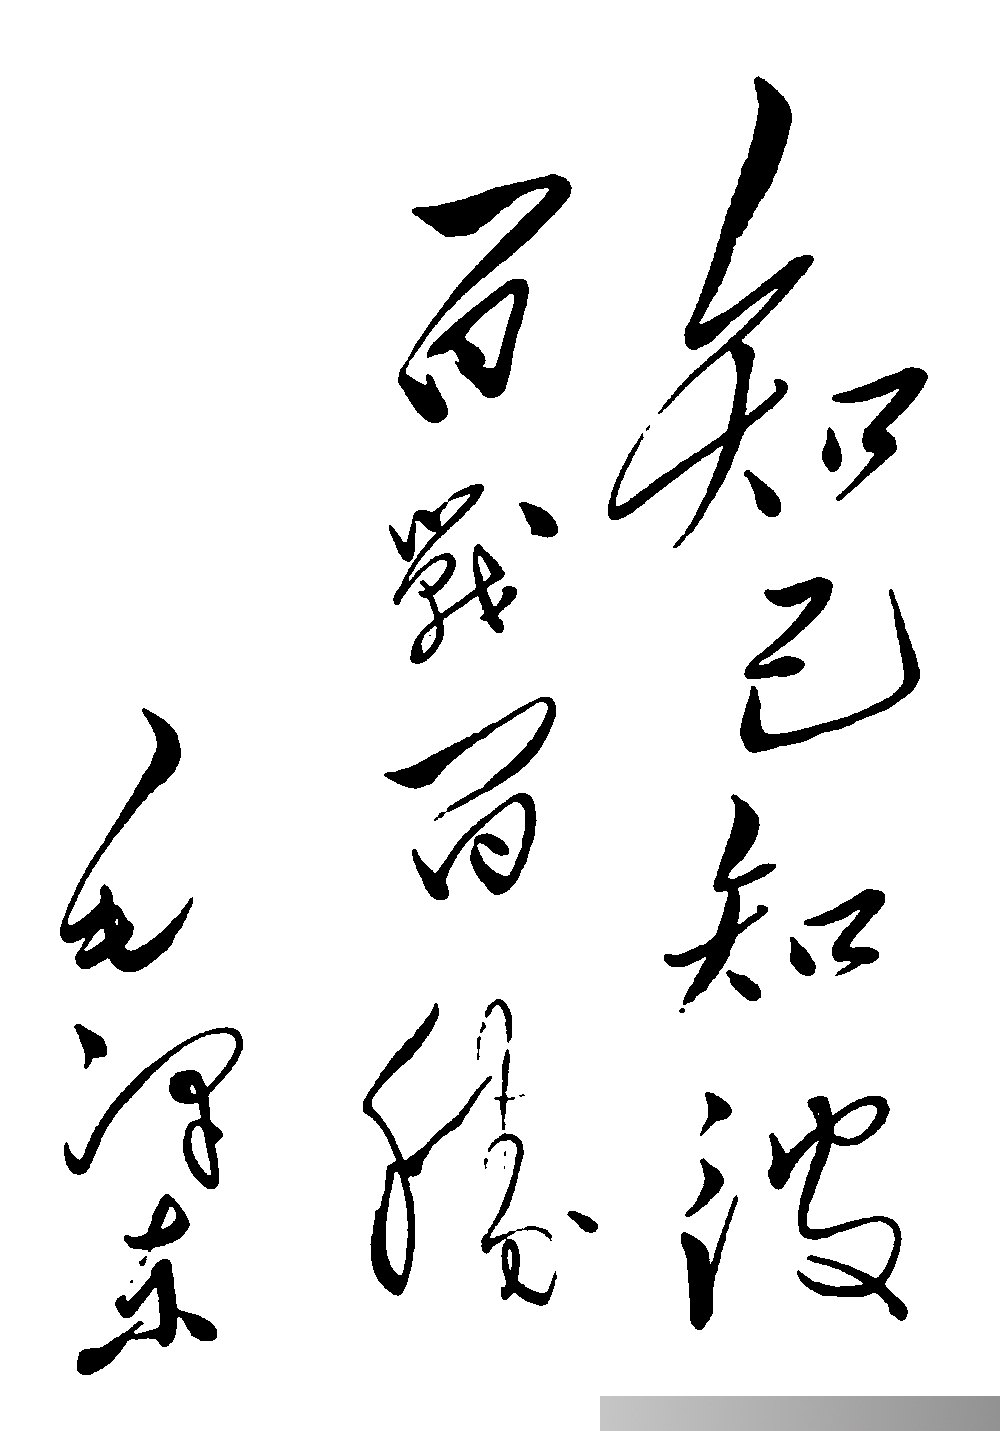 知己知彼
百戰百勝
毛澤東